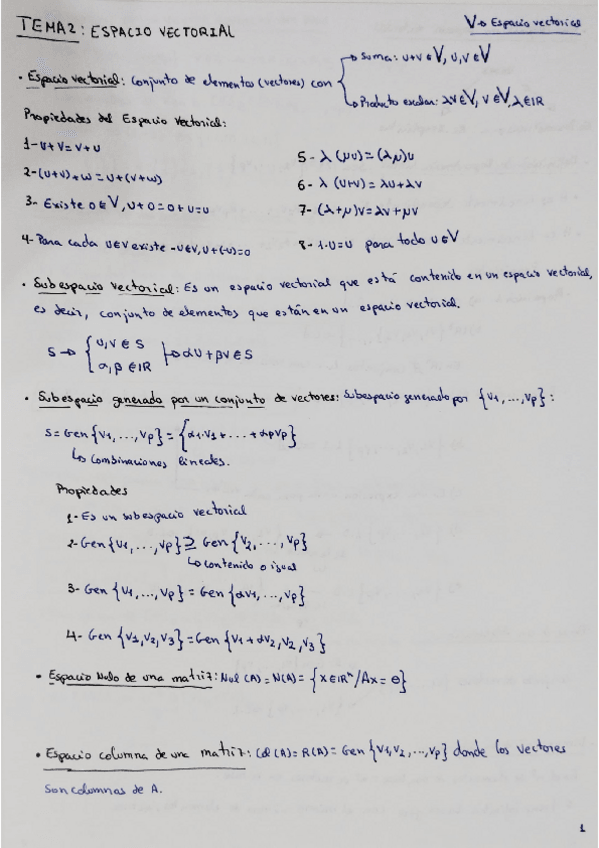 TEMA2: ESPACIO VECTORIAL
V→ Espacio vectorial
• Espacio vectorial: Conjunto de elementos (vectores) con { → Suma: u+v∈V, u,v∈V
↳ Producto escalar: λv∈V, v∈V, λ∈IR
Propiedades del Espacio Vectorial:
1- u+v=v+u
2- (u+v)+w=u+(v+w)
3- Existe 0∈V, u+0=0+u=u
4- Para cada u∈V existe -u∈V, u+(-u)=0
5- λ(μu)=(λμ)u
6- λ(u+v)=λu+λv
7- (λ+μ)v=λv+μv
8- 1·u=u para todo u∈V
• Subespacio vectorial: Es un espacio vectorial que está contenido en un espacio vectorial,
es decir, conjunto de elementos que están en un espacio vectorial.
S → { u,v∈S
α,β∈IR } → αu+βv∈S
• Subespacio generado por un conjunto de vectores: Subespacio generado por {v1,...,vp}:
S=Gen{v1,...,vp}={α1·v1+...+αpvp}
↳ Combinaciones lineales.
Propiedades
1- Es un subespacio vectorial
2- Gen{v1,...,vp}⊇Gen{v2,...,vp}
↳ contenido o igual
3- Gen{v1,...,vp}=Gen{αv1,...,vp}
4- Gen{v1,v2,v3}=Gen{v1+αv2,v2,v3}
• Espacio Nulo de una matriz: Nul(A)=N(A)={x∈IRⁿ/Ax=θ}
• Espacio columna de una matriz: Col(A)=R(A)=Gen{v1,v2,...,vp} donde los vectores
son columnas de A.
1